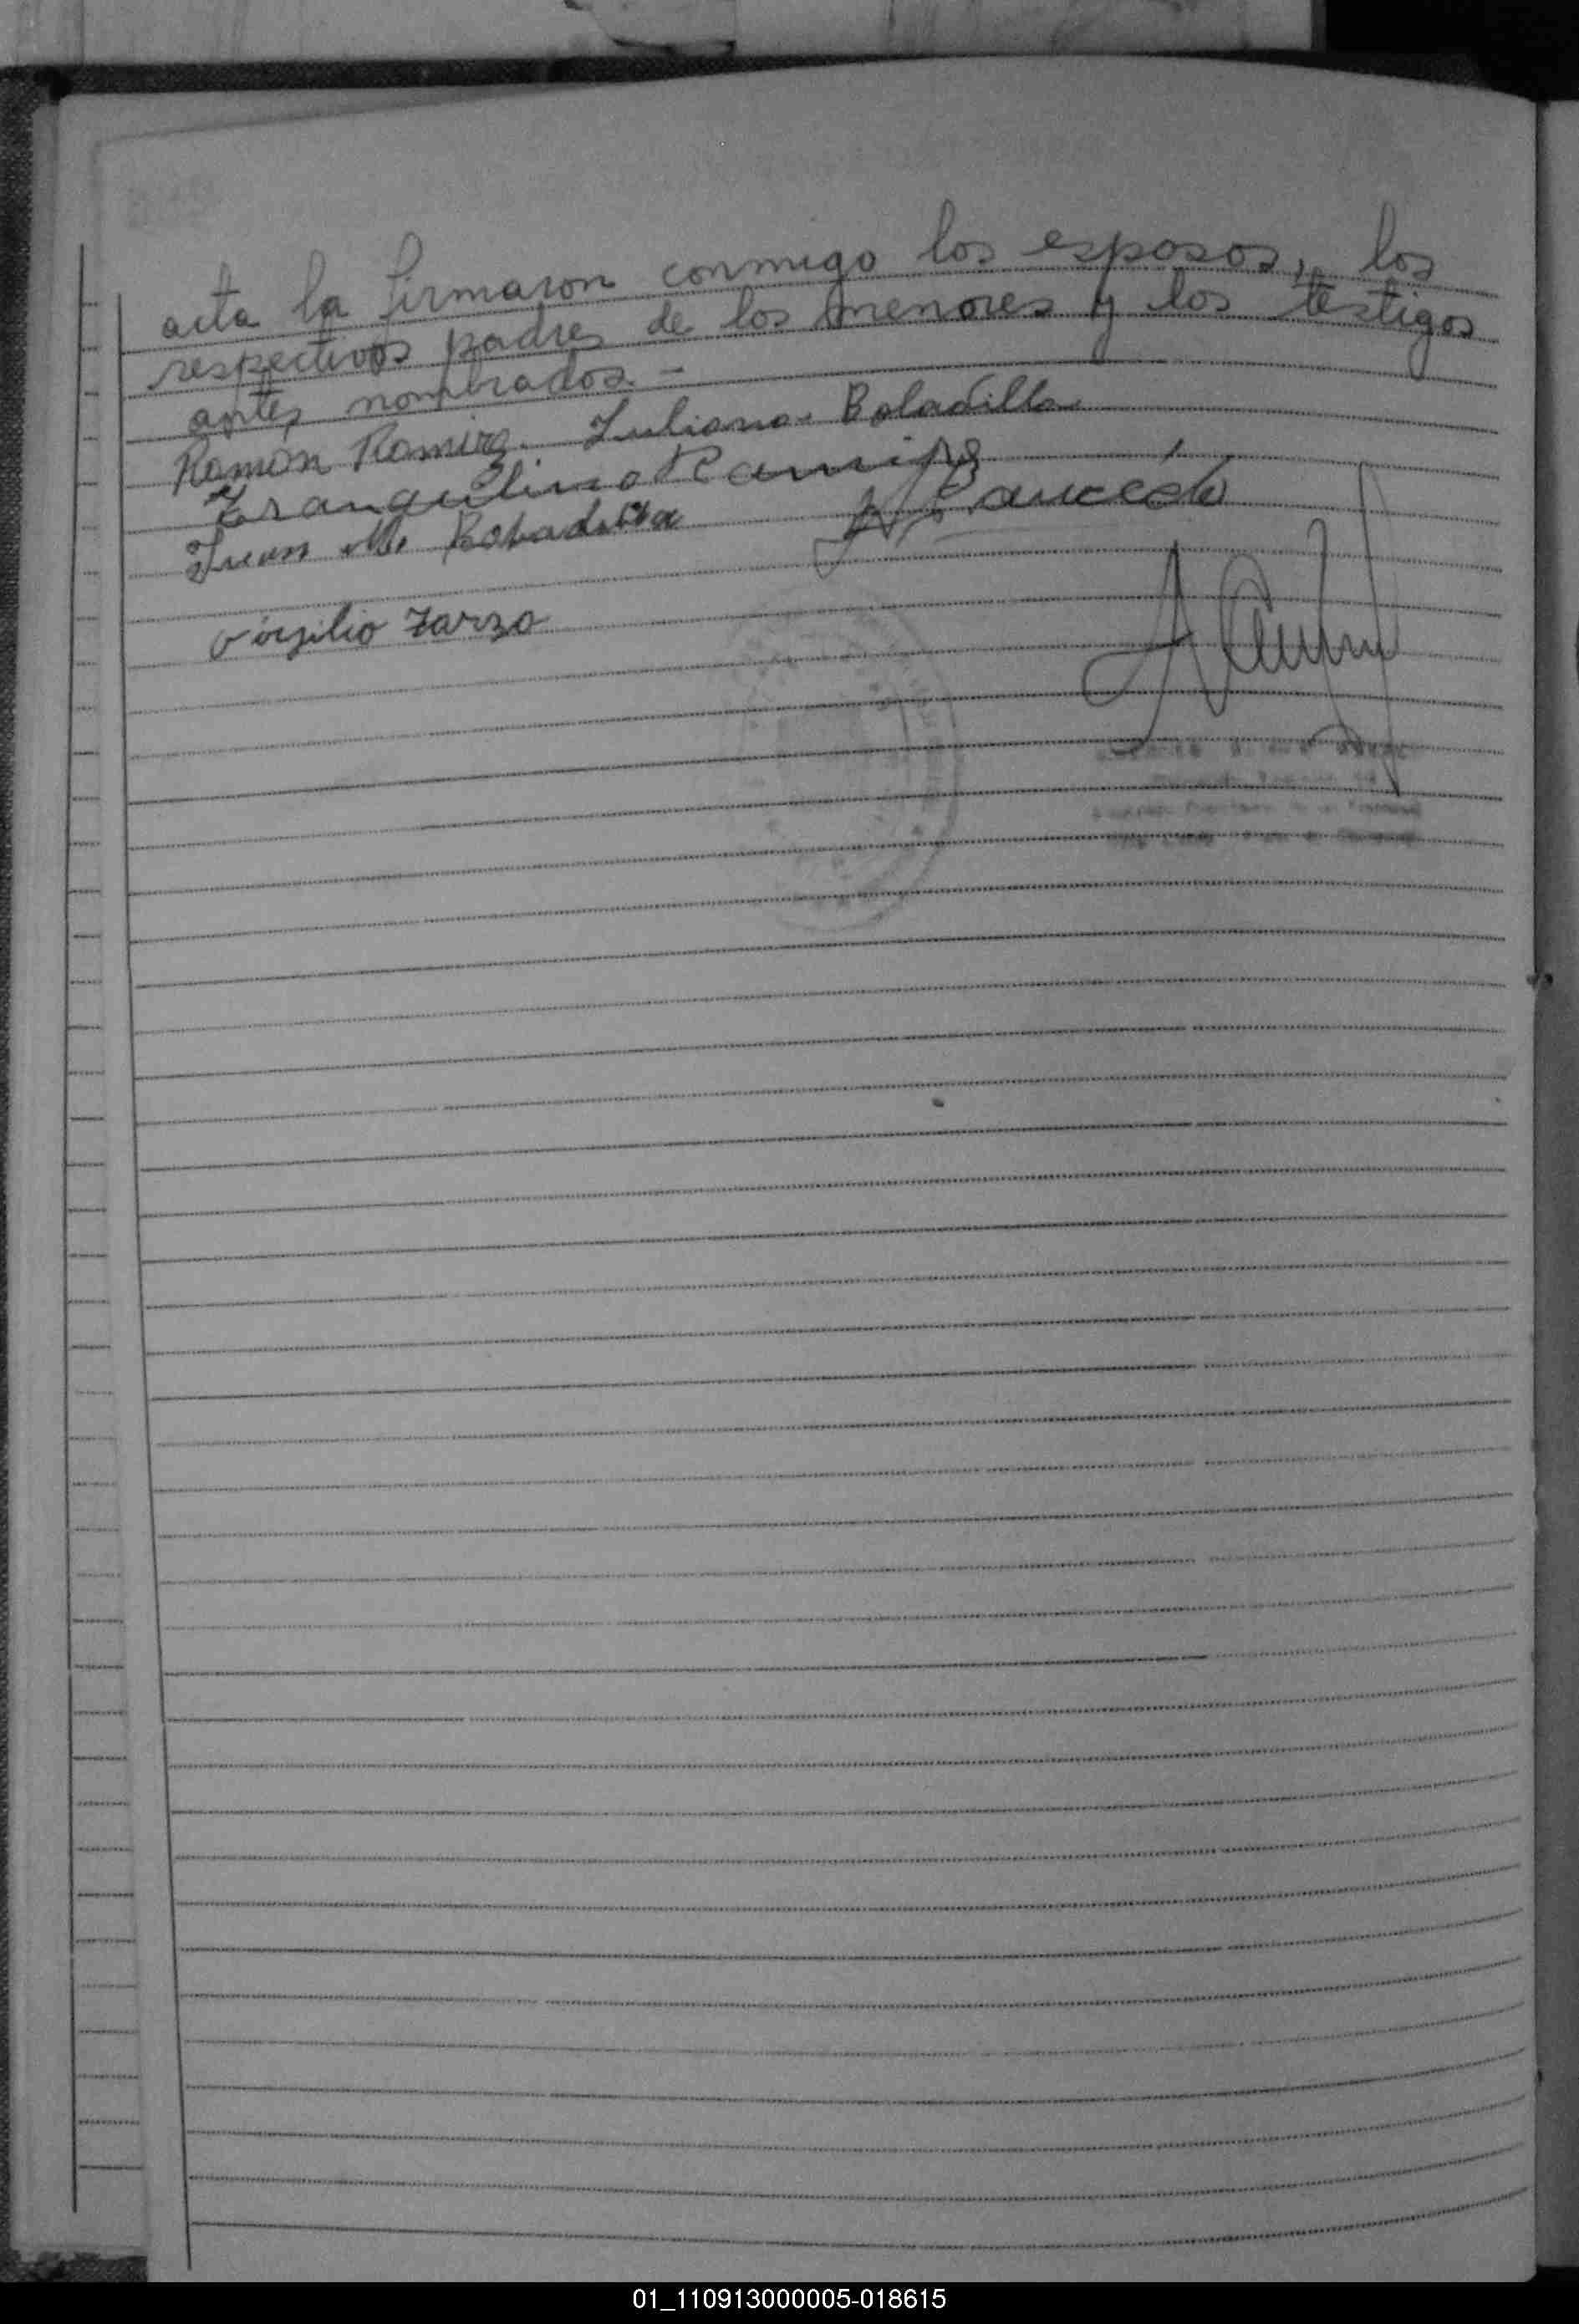 acta la firmaron conmigo los esposos, los
respectivos padres de los menores y los testigos
antes nombrados. -
Ramón Ramirez. Juliana Bobadilla
Tranquilino Ramirez
Juan M. Bobadilla
Virgilio Zarza
01_110913000005-018615